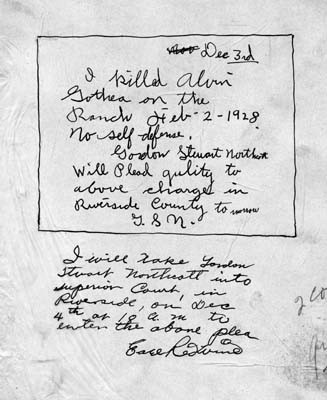 Dec 3rd
I killed Alvin
Gothea on the
Ranch Feb-2-1928
No self defense.
Gordon Stuart Northcott
Will Plead guilty to
above charge in
Riverside County tomorrow
G. S. N.
I will take Gordon
Stuart Northcott into
Superior Court, in
Riverside, on Dec
4th at 10 A.M. to
enter the above plea